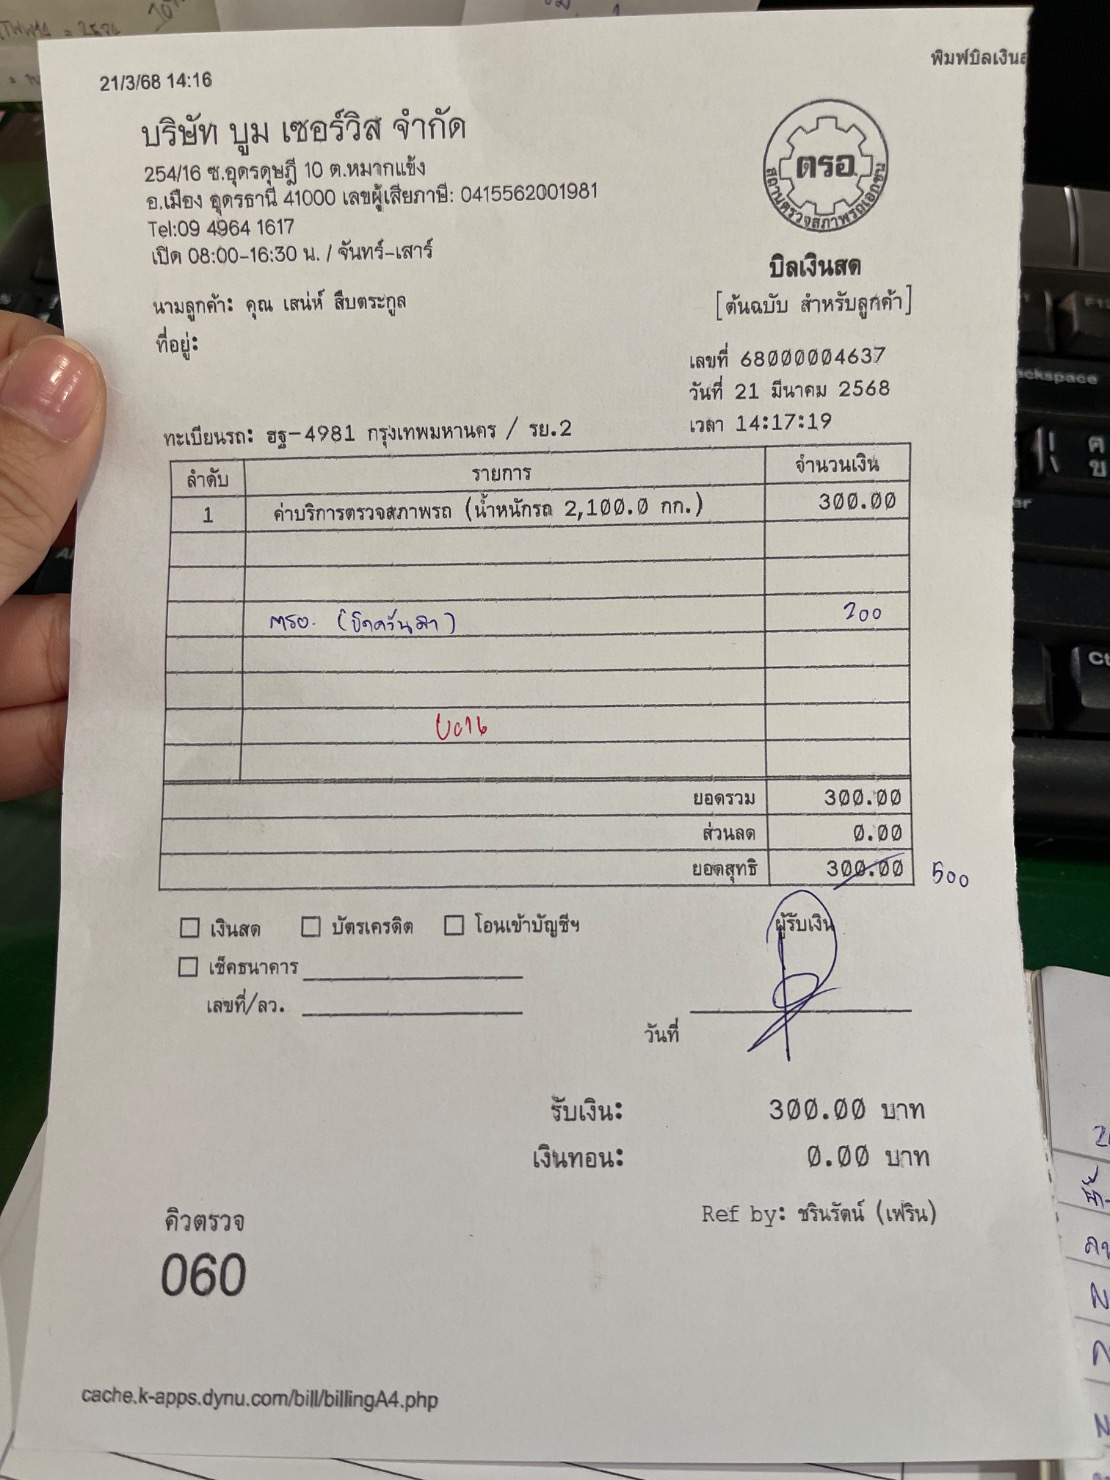 21/3/68 14:16
พิมพ์บิลเงินส
บริษัท บูม เซอร์วิส จำกัด
254/16 ซ.อุดรดุษฎี 10 ต.หมากแข้ง
อ.เมือง อุดรธานี 41000 เลขผู้เสียภาษี: 0415562001981
Tel:09 4964 1617
เปิด 08:00-16:30 น. / จันทร์-เสาร์
ตรอ.
สถานตรวจสภาพรถเอกชน
บิลเงินสด
[ต้นฉบับ สำหรับลูกค้า]
นามลูกค้า: คุณ เสน่ห์ สืบตระกูล
ที่อยู่:
เลขที่ 68000004637
วันที่ 21 มีนาคม 2568
เวลา 14:17:19
ทะเบียนรถ: ฮฐ-4981 กรุงเทพมหานคร / รย.2
ลำดับ รายการ จำนวนเงิน
1 ค่าบริการตรวจสภาพรถ (น้ำหนักรถ 2,100.0 กก.) 300.00
ตรอ. 200
ยอดรวม 300.00
ส่วนลด 0.00
ยอดสุทธิ 300.00 500
เงินสด บัตรเครดิต โอนเข้าบัญชีฯ
เช็คธนาคาร
เลขที่/ลว.
ผู้รับเงิน
วันที่
รับเงิน: 300.00 บาท
เงินทอน: 0.00 บาท
Ref by: ชรินรัตน์ (เฟริน)
คิวตรวจ
060
cache.k-apps.dynu.com/bill/billingA4.php